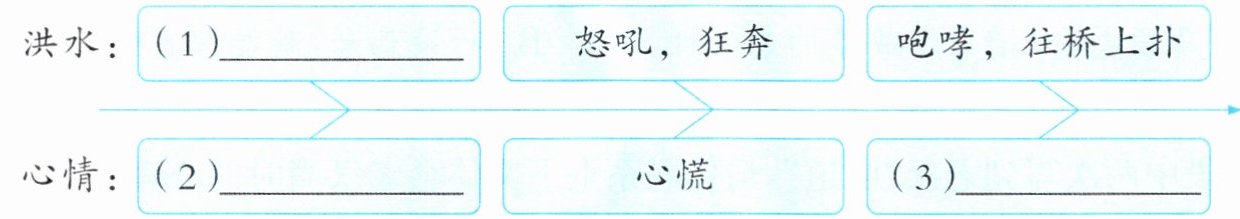 洪水：（1）__________ 怒吼，狂奔 咆哮，往桥上扑
心情：（2）__________ 心慌 （3）__________